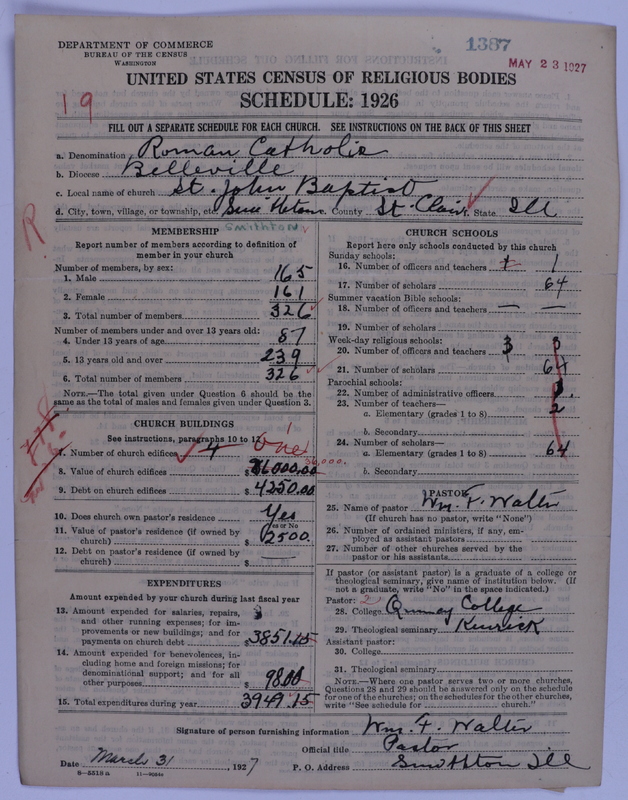 DEPARTMENT OF COMMERCE
BUREAU OF THE CENSUS
WASHINGTON
1387
MAY 23 1927
UNITED STATES CENSUS OF RELIGIOUS BODIES
SCHEDULE: 1926
19
FILL OUT A SEPARATE SCHEDULE FOR EACH CHURCH. SEE INSTRUCTIONS ON THE BACK OF THIS SHEET
a. Denomination Roman Catholic
b. Diocese Belleville
c. Local name of church St. John Baptist
d. City, town, village, or township, etc. County St. Clair State Ill
Smithton
R
MEMBERSHIP
Report number of members according to definition of
member in your church
Number of members, by sex:
1. Male 165
2. Female 161
3. Total number of members 326
Number of members under and over 13 years old:
4. Under 13 years of age 87
5. 13 years old and over 239
6. Total number of members 326
NOTE.—The total given under Question 6 should be the
same as the total of males and females given under Question 3.
CHURCH BUILDINGS
See instructions, paragraphs 10 to 12
7. Number of church edifices one
8. Value of church edifices $36000.00 36,000.
9. Debt on church edifices $4250.00
10. Does church own pastor's residence Yes
Yes or No
11. Value of pastor's residence (if owned by
church) $2500.
12. Debt on pastor's residence (if owned by
church) $
EXPENDITURES
Amount expended by your church during last fiscal year
13. Amount expended for salaries, repairs,
and other running expenses; for im-
provements or new buildings; and for
payments on church debt $3851.15
14. Amount expended for benevolences, in-
cluding home and foreign missions; for
denominational support; and for all
other purposes $98.00
15. Total expenditures during year 3949.15
CHURCH SCHOOLS
Report here only schools conducted by this church
Sunday schools:
16. Number of officers and teachers 1
17. Number of scholars 64
Summer vacation Bible schools:
18. Number of officers and teachers — —
19. Number of scholars
Week-day religious schools:
20. Number of officers and teachers 3 3
21. Number of scholars 64
Parochial schools:
22. Number of administrative officers 1
23. Number of teachers—
a. Elementary (grades 1 to 8) 2
b. Secondary
24. Number of scholars—
a. Elementary (grades 1 to 8) 64
b. Secondary
PASTOR
25. Name of pastor Wm. F. Walter
(If church has no pastor, write "None")
26. Number of ordained ministers, if any, em-
ployed as assistant pastors
27. Number of other churches served by the
pastor or his assistants
If pastor (or assistant pastor) is a graduate of a college or
theological seminary, give name of institution below. (If
not a graduate, write "No" in the space indicated.)
Pastor: 2
28. College Quincy College
29. Theological seminary Kenrick
Assistant pastor:
30. College
31. Theological seminary
NOTE.—Where one pastor serves two or more churches,
Questions 28 and 29 should be answered only on the schedule
for one of the churches; on the schedules for the other churches,
write "See schedule for church."
Signature of person furnishing information Wm. F. Walter
Official title Pastor
Date March 31, 1927 P. O. Address Smithton Ill
8—5518 a